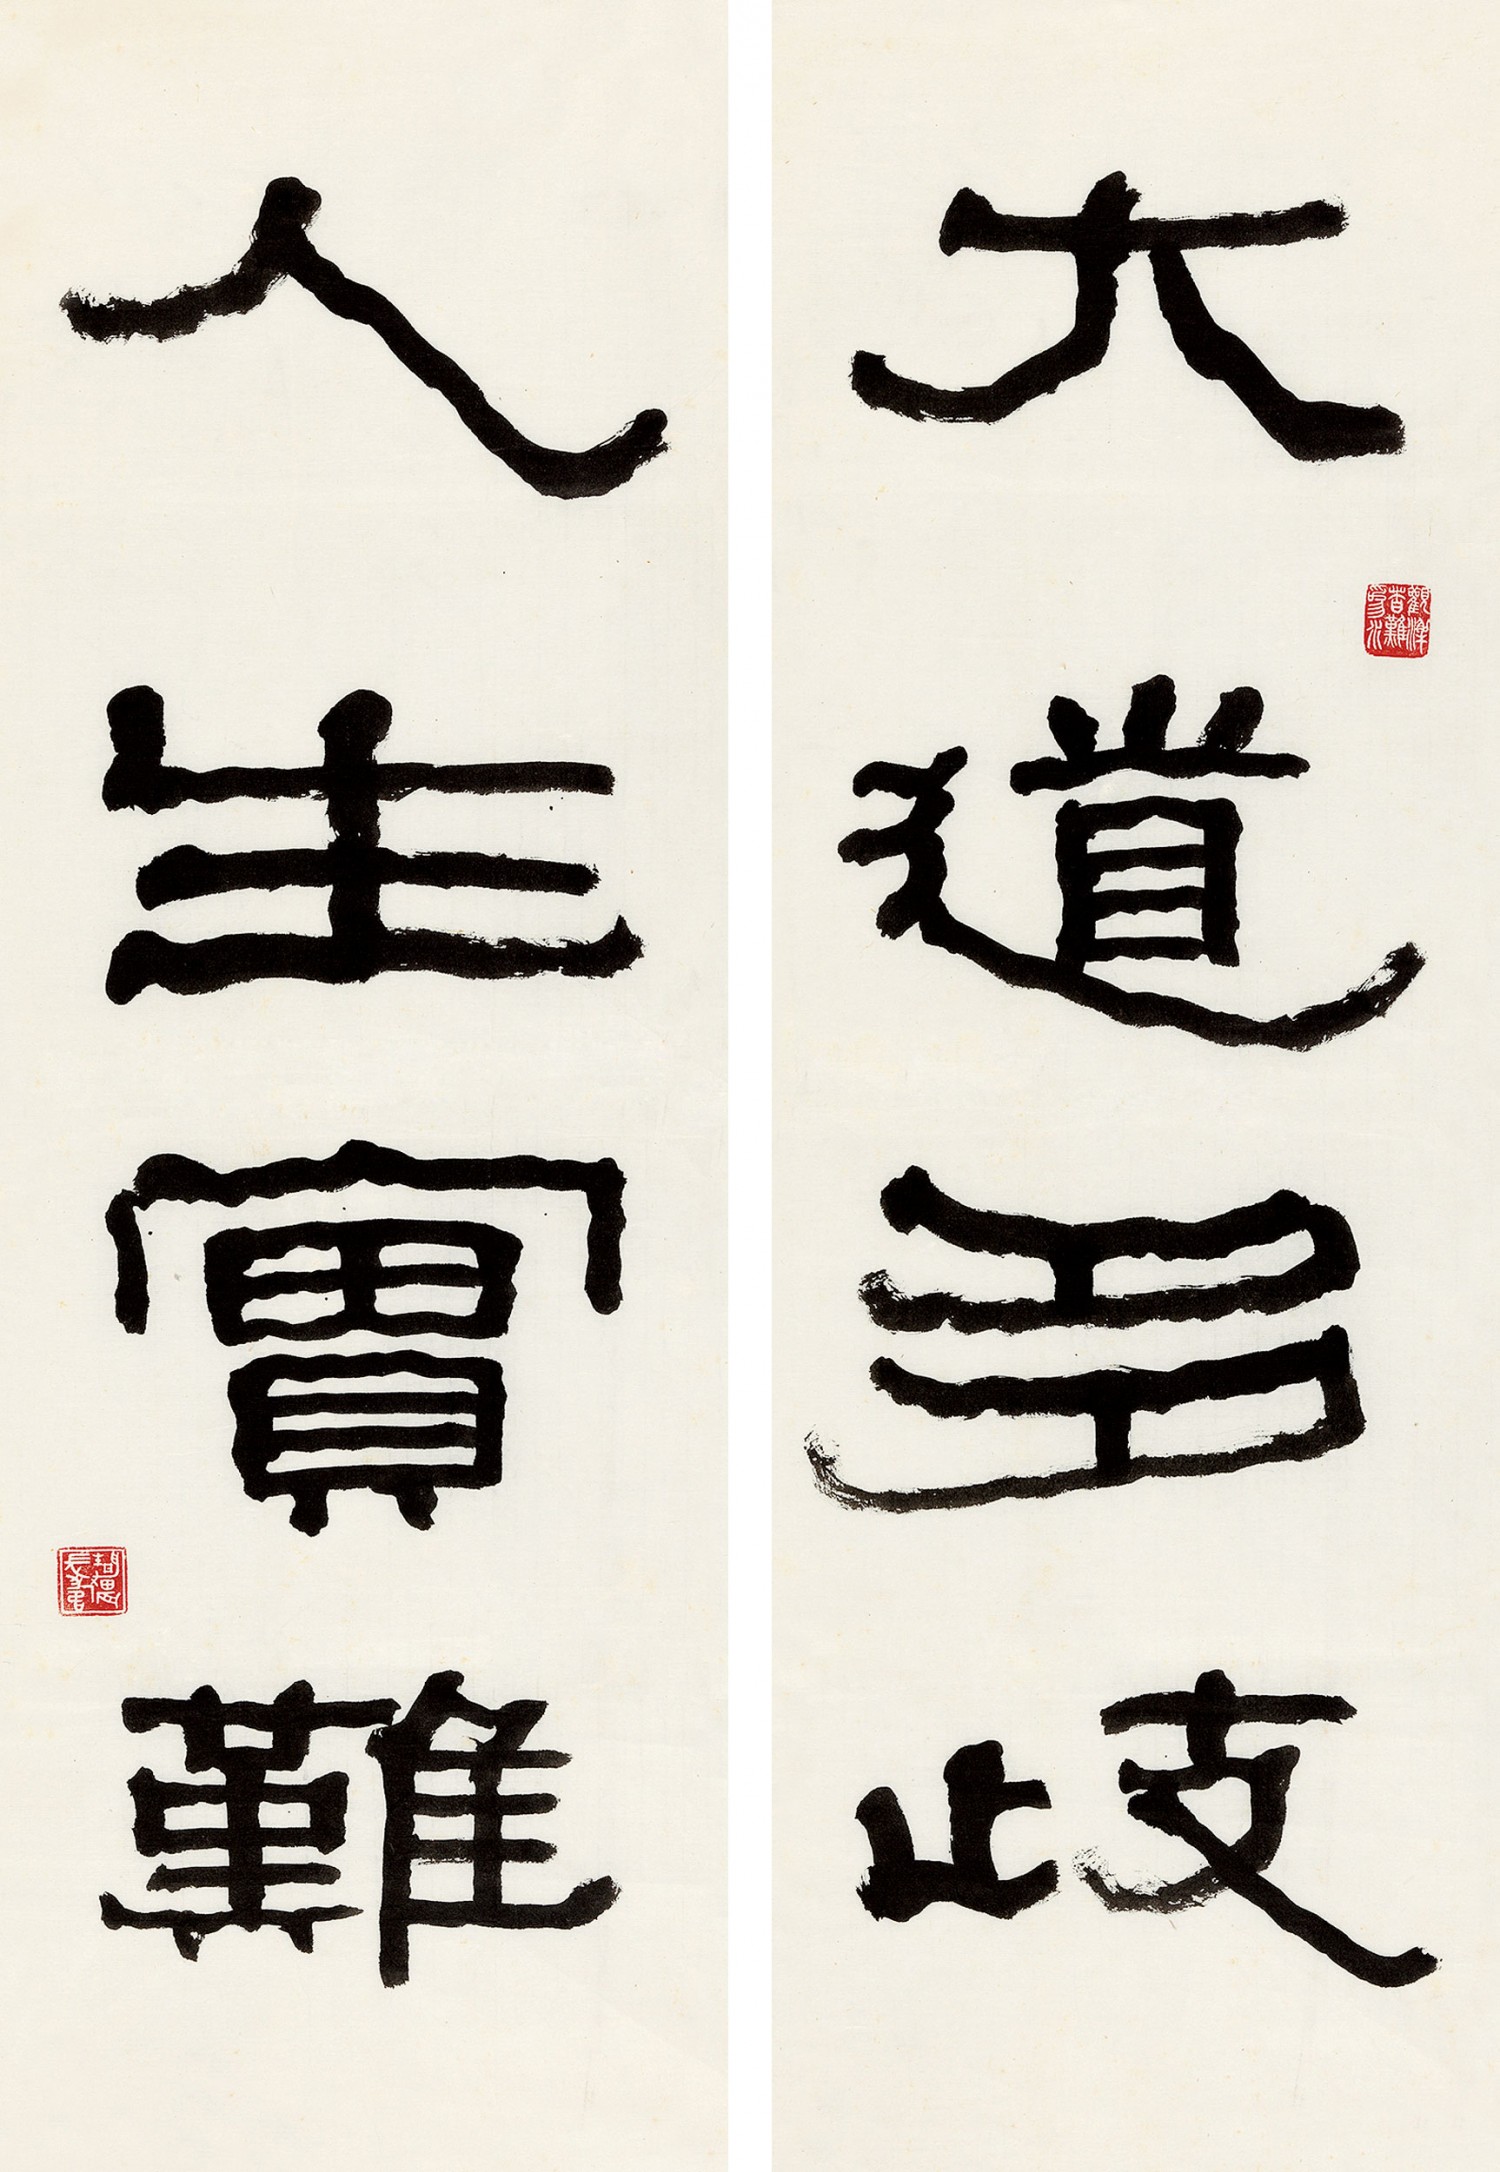 大道多歧
人生實難